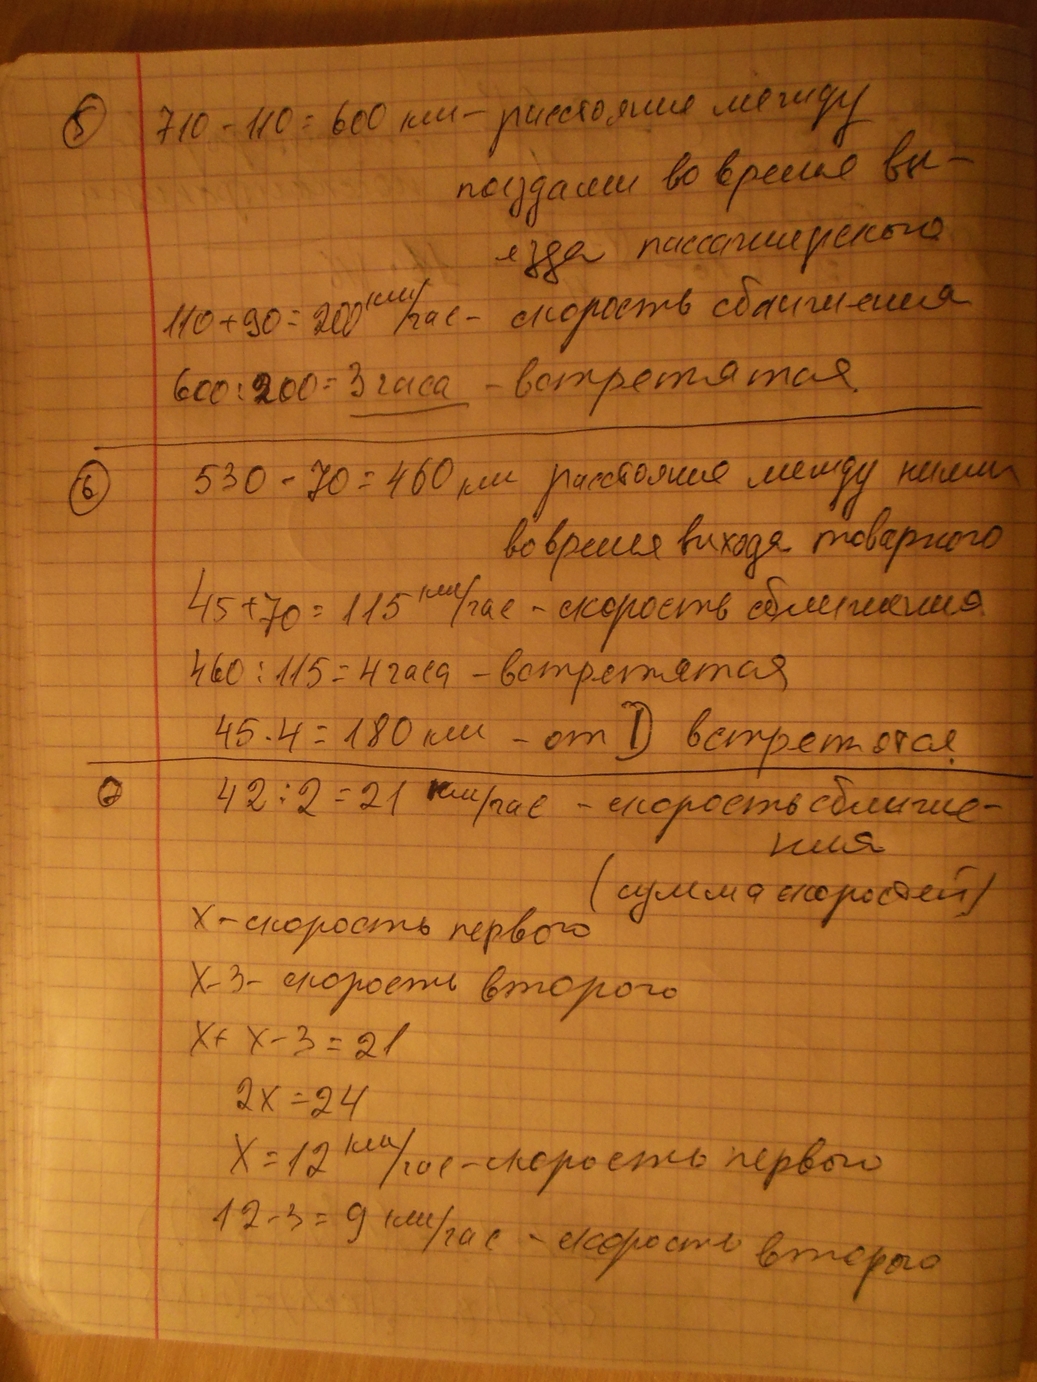 5 710 - 110 = 600 км - расстояние между
поездами во время вы-
езда пассажирского
110 + 90 = 200 км/час - скорость сближения
600 : 200 = 3 часа - встретятся
6 530 - 70 = 460 км расстояние между ними
во время выхода товарного
45 + 70 = 115 км/час - скорость сближения
460 : 115 = 4 часа - встретятся
45 · 4 = 180 км - от D встретятся
7 42 : 2 = 21 км/час - скорость сближе-
ния
(сумма скоростей)
x - скорость первого
x - 3 - скорость второго
x + x - 3 = 21
2x = 24
x = 12 км/час - скорость первого
12 - 3 = 9 км/час - скорость второго